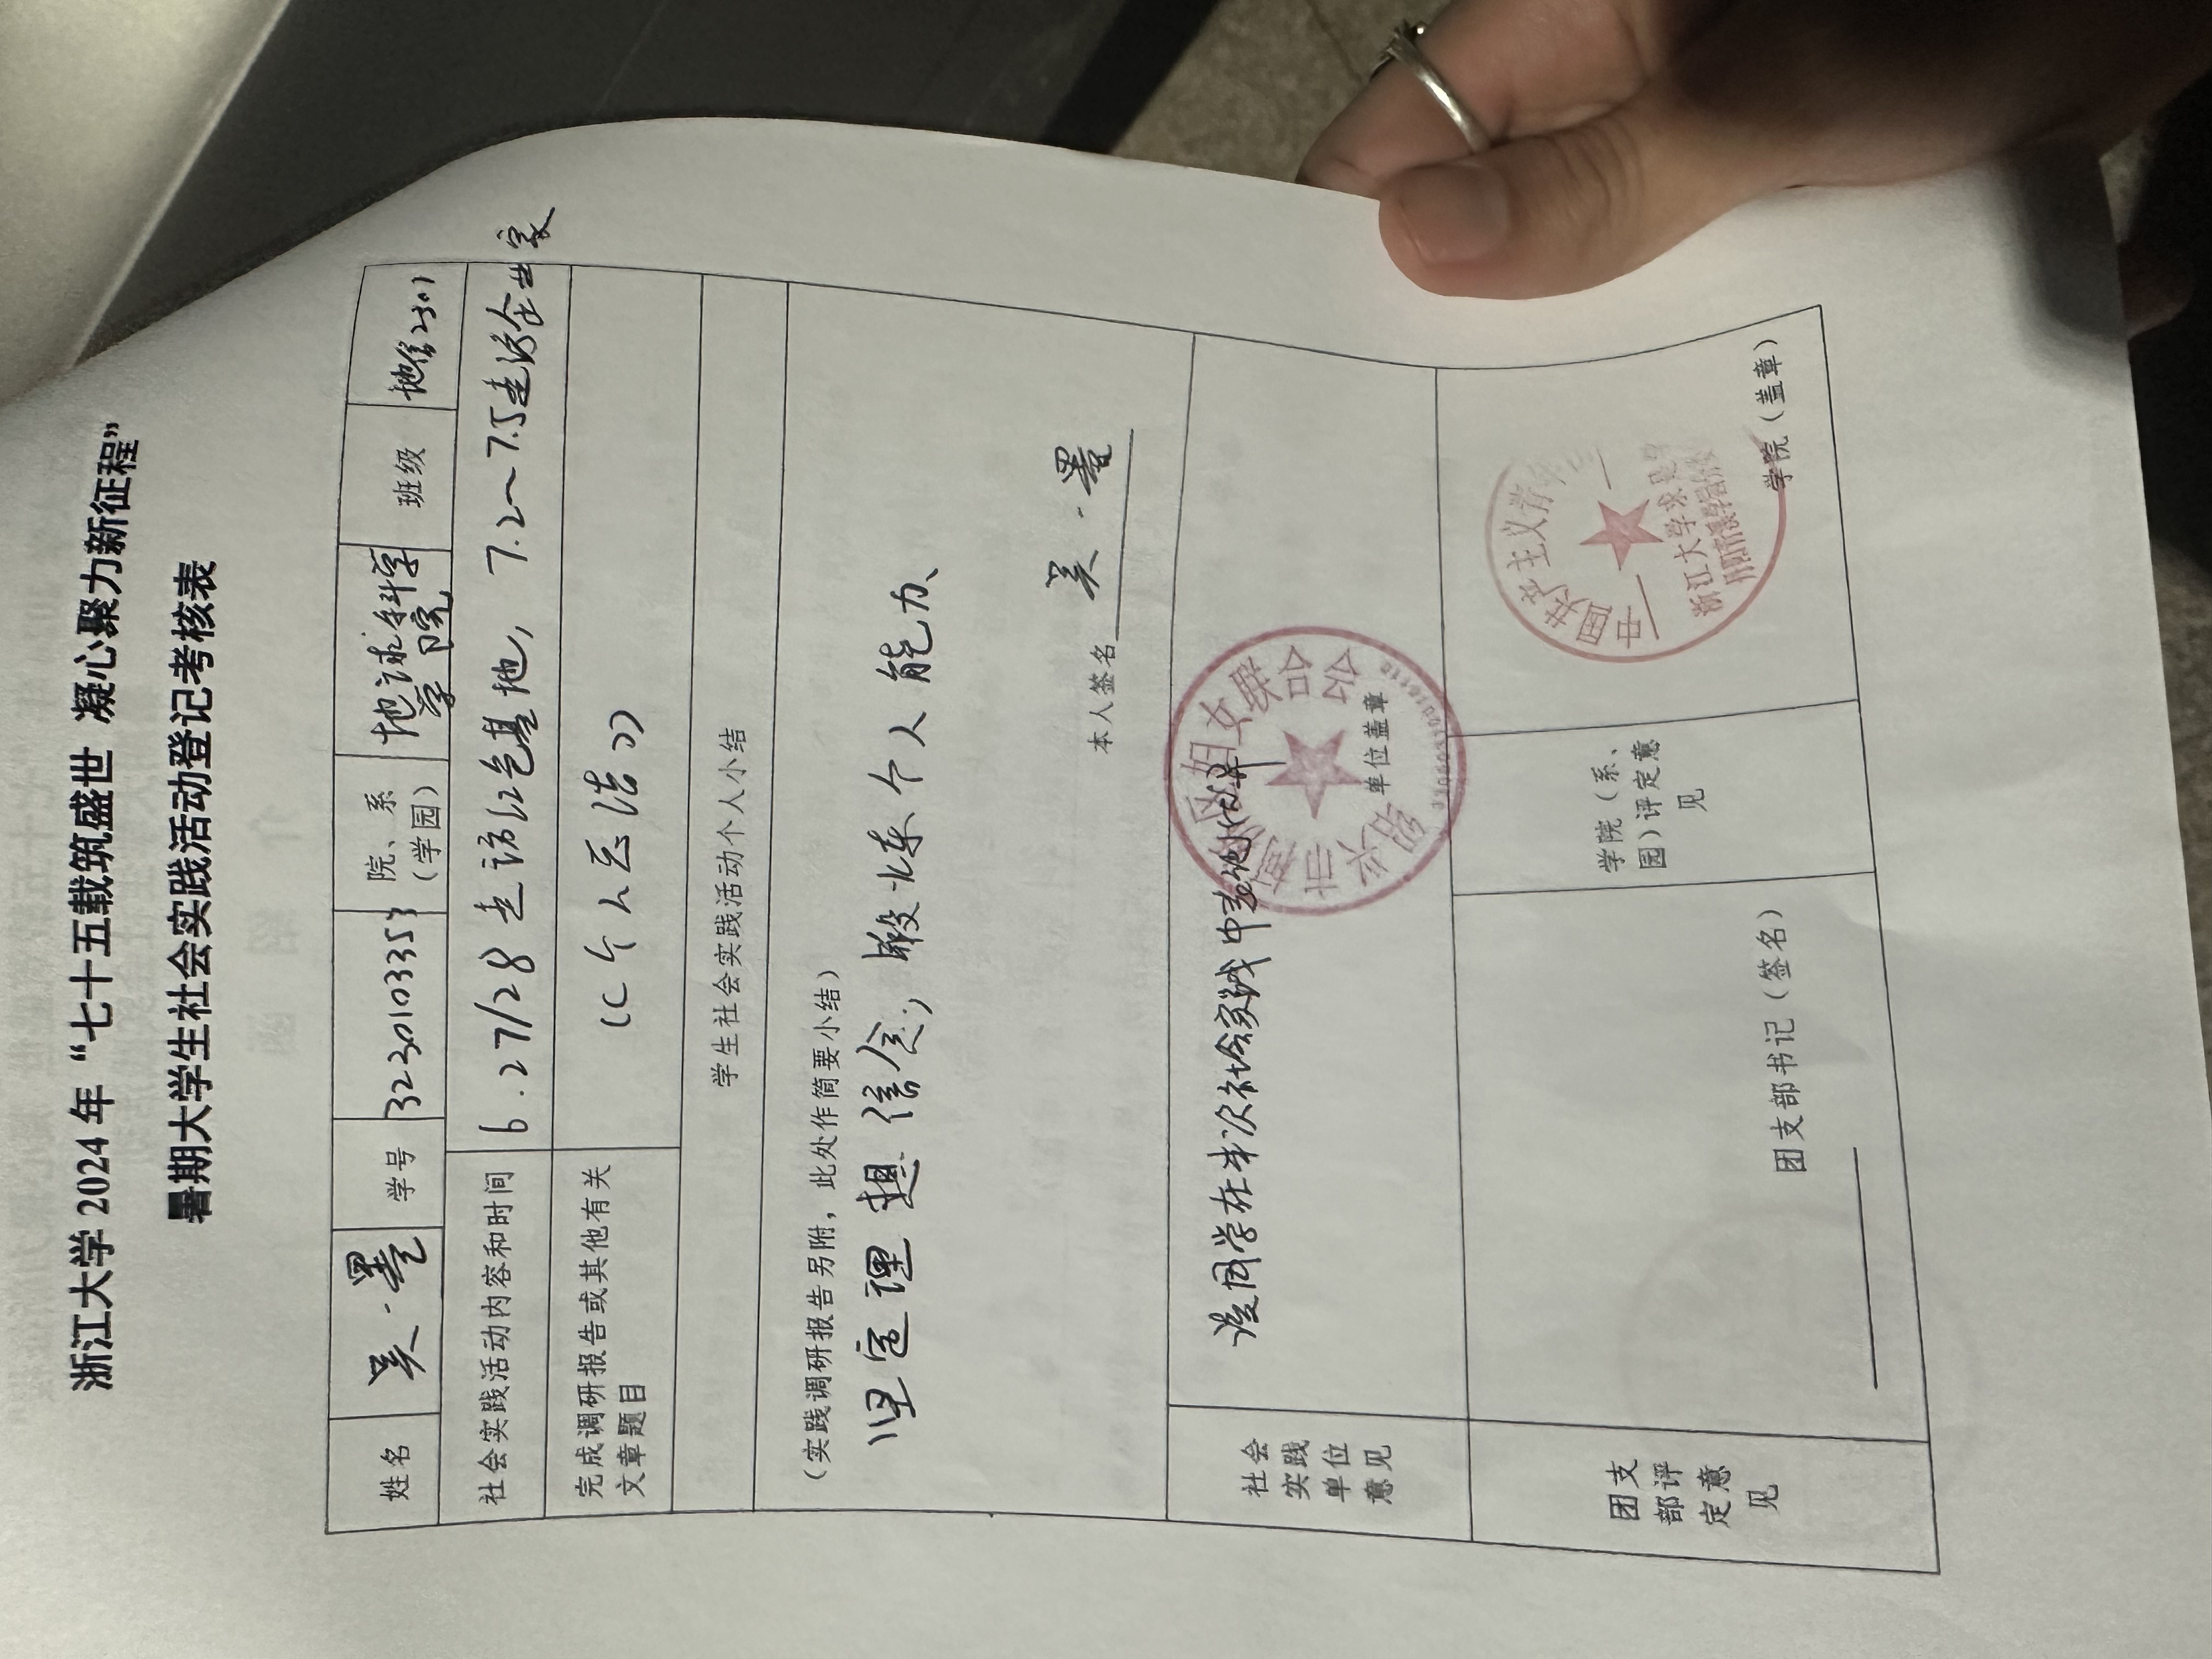 浙江大学 2024 年“七十五载筑盛世 凝心聚力新征程”
暑期大学生社会实践活动登记考核表
姓名 吴一墨 学号 3230103353 院、系（学园） 地球科学学院 班级 地信2301
社会实践活动内容和时间 6.27/28 走访红色基地, 7.2~7.5走访企业家
完成调研报告或其他有关
文章题目
《个人总结》
学生社会实践活动个人小结
（实践调研报告另附，此处作简要小结）
坚定理想信念, 锻炼个人能力、
本人签名 吴一墨
社会
实践
单位
意见
该同学在本次社会实践中表现优异
绍兴市柯桥区妇女联合会
单位盖章
团支
部评
定意
见
团支部书记（签名）
学院（系、
园）评定意
见
中国共产主义青
浙江大学求是学
丹阳青溪学园分委
学院（盖章）